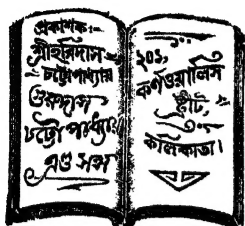 প্রকাশক:-
শ্রীহরিদাস
চট্টোপাধ্যায়
গুরুদাস
চট্টোপাধ্যায়
এণ্ড সন্স
২০১,
কর্ণওয়ালিস
ষ্ট্রীট,
কলিকাতা।